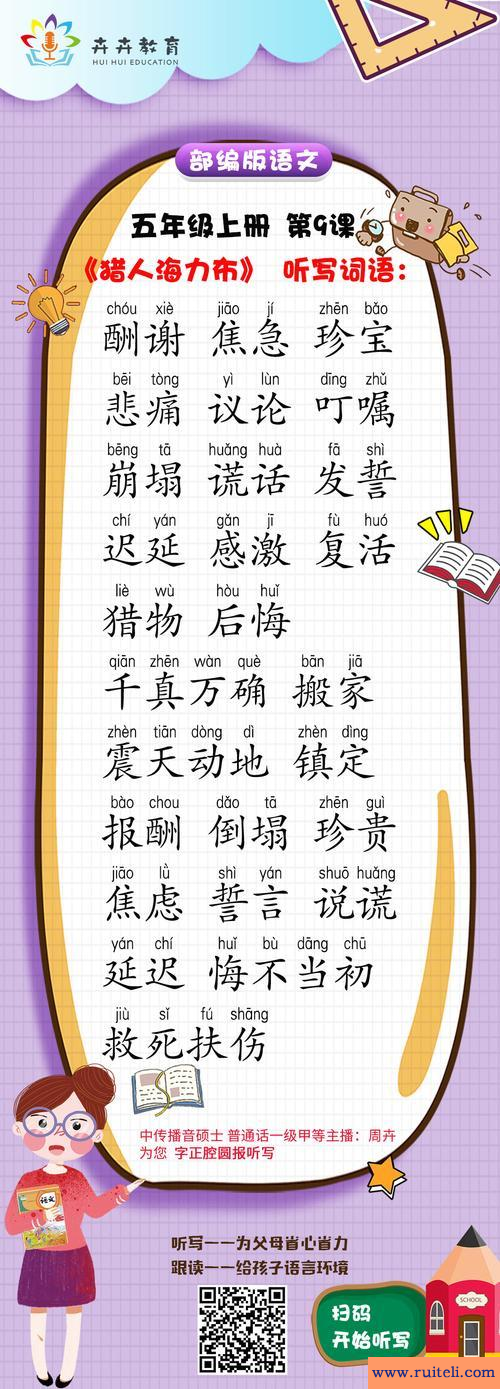 卉卉教育
HUI HUI EDUCATION
部编版语文
五年级上册 第9课
《猎人海力布》 听写词语：
chóu xiè jiāo jí zhēn bǎo
酬谢 焦急 珍宝
bēi tòng yì lùn dīng zhǔ
悲痛 议论 叮嘱
bēng tā huǎng huà fā shì
崩塌 谎话 发誓
chí yán gǎn jī fù huó
迟延 感激 复活
liè wù hòu huǐ
猎物 后悔
qiān zhēn wàn què bān jiā
千真万确 搬家
zhèn tiān dòng dì zhèn dìng
震天动地 镇定
bào chou dǎo tā zhēn guì
报酬 倒塌 珍贵
jiāo lǜ shì yán shuō huǎng
焦虑 誓言 说谎
yán chí huǐ bù dāng chū
延迟 悔不当初
jiù sǐ fú shāng
救死扶伤
中传播音硕士 普通话一级甲等主播：周卉
为您 字正腔圆报听写
语文
听写——为父母省心省力
跟读——给孩子语言环境
扫码
开始听写
SCHOOL
www.ruiteli.com